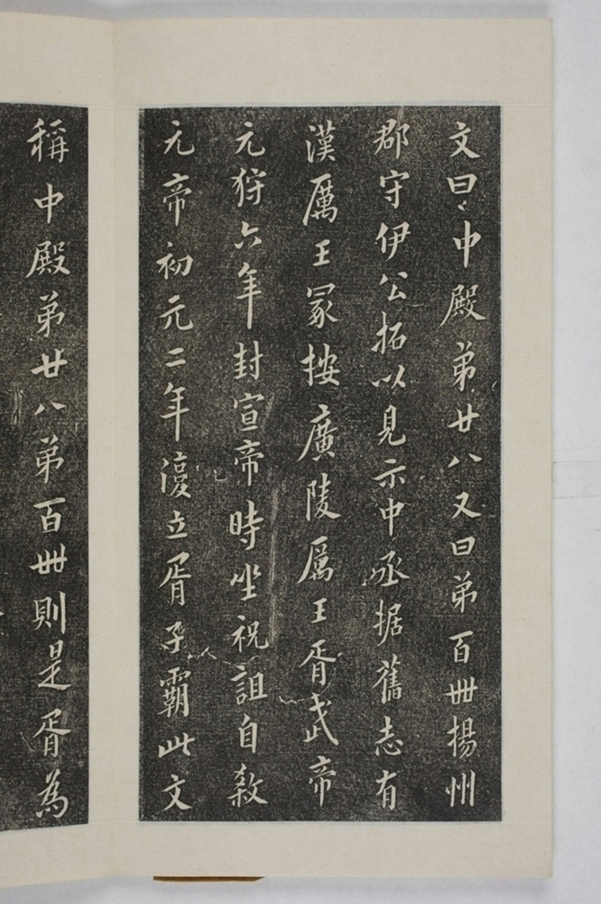 文曰中殿弟廿八又曰弟百卌揚州
郡守伊公拓以見示中丞据舊志有
漢厲王冢按廣陵厲王胥武帝
元狩六年封宣帝時坐祝詛自殺
元帝初元二年復立胥子霸此文
稱中殿弟廿八弟百卌則是胥為